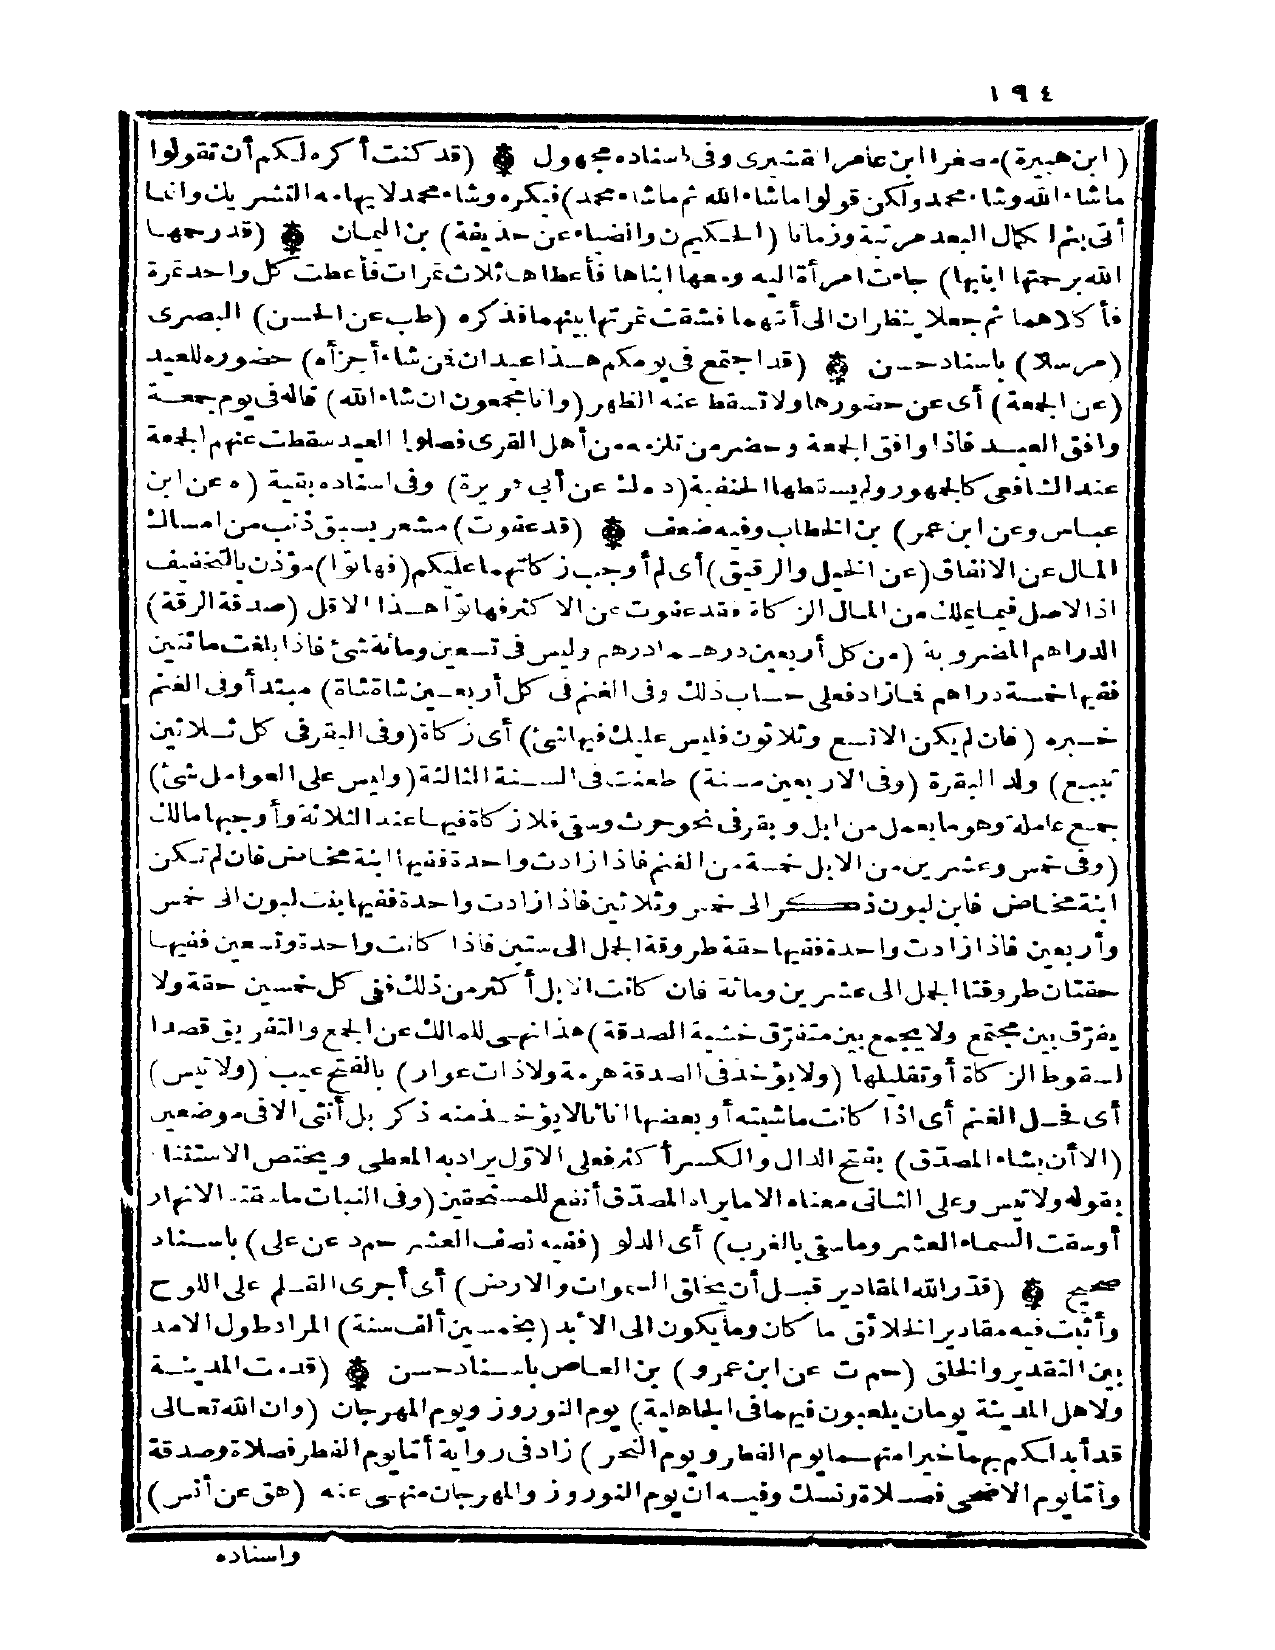 ١٩٤
(ابن هبيرة) مصغرا ابن عامر القشيرى وفى اسناده مجهول (قد كنت أكره لكم أن تقولوا
ما شاء الله وشاء محمد ولكن قولوا ما شاء الله ثم ما شاء محمد) فيكره وشاء محمد لايهامه التشريك وانما
أتى بثم لكمال البعد مرتبة وزمانا (الحكيم ن والضياء عن حذيفة) بن اليمان (قد رحمها
الله برحمتها ابنيها) جاءت امرأة اليه ومعها ابناها فأعطاها ثلاث تمرات فأعطت كل واحد تمرة
فأكلاهما ثم جعلا ينظران الى أمهما فشقت تمرتها بينهما فذكره (طب عن الحسن) البصرى
(مرسلا) باسناد حسن (قد اجتمع فى يومكم هذا عيدان فمن شاء أجزأه) حضوره للعيد
(عن الجمعة) أى عن حضورها ولا تسقط عنه الظهر (وانا مجمعون ان شاء الله) قاله فى يوم جمعة
وافق العيد فاذا وافق الجمعة وحضر من تلزمه من أهل القرى فصلوا العيد سقطت عنهم الجمعة
عند الشافعى كالجمهور ولم يسقطها الحنفية (د ه ك عن أبى هريرة) وفى اسناده بقية (ه عن ابن
عباس وعن ابن عمر) بن الخطاب وفيه ضعف (قد عفوت) مشعر بسبق ذنب من امساك
المال عن الانفاق (عن الخيل والرقيق) أى لم أوجب زكاتهما عليكم (فهاتوا) مؤذن بالتخفيف
اذ الاصل فيما يملك من المال الزكاة فقد عفوت عن الاكثر فهاتوا هذا الاقل (صدقة الرقة)
الدراهم المضروبة (من كل أربعين درهما درهم وليس فى تسعين ومائة شئ فاذا بلغت مائتين
ففيها خمسة دراهم فمازاد فعلى حساب ذلك وفى الغنم فى كل أربعين شاة شاة) مبتدأ وفى الغنم
خبره (فان لم يكن الا تسع وثلاثون فليس عليك فيها شئ) أى زكاة (وفى البقر فى كل ثلاثين
تبيع) ولد البقرة (وفى الاربعين مسنة) طعنت فى السنة الثالثة (وليس على العوامل شئ)
جمع عاملة وهو ما يعمل من ابل وبقر فى نحو حرث وسقى فلا زكاة فيها عند الثلاثة وأوجبها مالك
(وفى خمس وعشرين من الابل خمسة من الغنم فاذا زادت واحدة ففيها ابنة مخاض فان لم تكن
ابنة مخاض فابن لبون ذكر الى خمس وثلاثين فاذا زادت واحدة ففيها بنت لبون الى خمس
وأربعين فاذا زادت واحدة ففيها حقة طروقة الجمل الى ستين فاذا كانت واحدة وتسعين ففيها
حقتان طروقتا الجمل الى عشرين ومائة فان كانت الابل أكثر من ذلك ففى كل خمسين حقة ولا
يفرّق بين مجتمع ولا يجمع بين متفرّق خشية الصدقة) هذا نهى للمالك عن الجمع والتفريق قصدا
لسقوط الزكاة أو تقليلها (ولا يؤخذ فى الصدقة هرمة ولا ذات عوار) بالفتح عيب (ولا تيس)
أى فحل الغنم أى اذا كانت ماشيته أو بعضها اناثا لا يؤخذ منه ذكر بل أنثى الا فى موضعين
(الا أن يشاء المصدّق) بفتح الدال والكسر أكثر فعلى الاوّل يراد به المعطى ويختص الاستثناء
بقوله ولا تيس وعلى الثانى معناه الا ما يراه المصدّق أنفع للمستحقين (وفى النبات ما سقته الانهار
أو سقت السماء العشر وما سقى بالغرب) أى الدلو (ففيه نصف العشر حم د عن على) باسناد
صحيح (قدّر الله المقادير قبل أن يخلق السموات والارض) أى أجرى القلم على اللوح
وأثبت فيه مقادير الخلائق ما كان وما يكون الى الأبد (بخمسين ألف سنة) المراد طول الامد
بين التقدير والخلق (حم ت عن ابن عمرو) بن العاص باسناد حسن (قدمت المدينة
ولاهل المدينة يومان يلعبون فيهما فى الجاهلية) يوم النوروز ويوم المهرجان (وان الله تعالى
قد أبدلكم بهما خيرا منهما يوم الفطر ويوم النحر) زاد فى رواية أمّا يوم الفطر فصلاة وصدقة
وأمّا يوم الاضحى فصلاة ونسك وفيه ان يوم النوروز والمهرجان منهى عنه (هق عن أنس)
واسناده